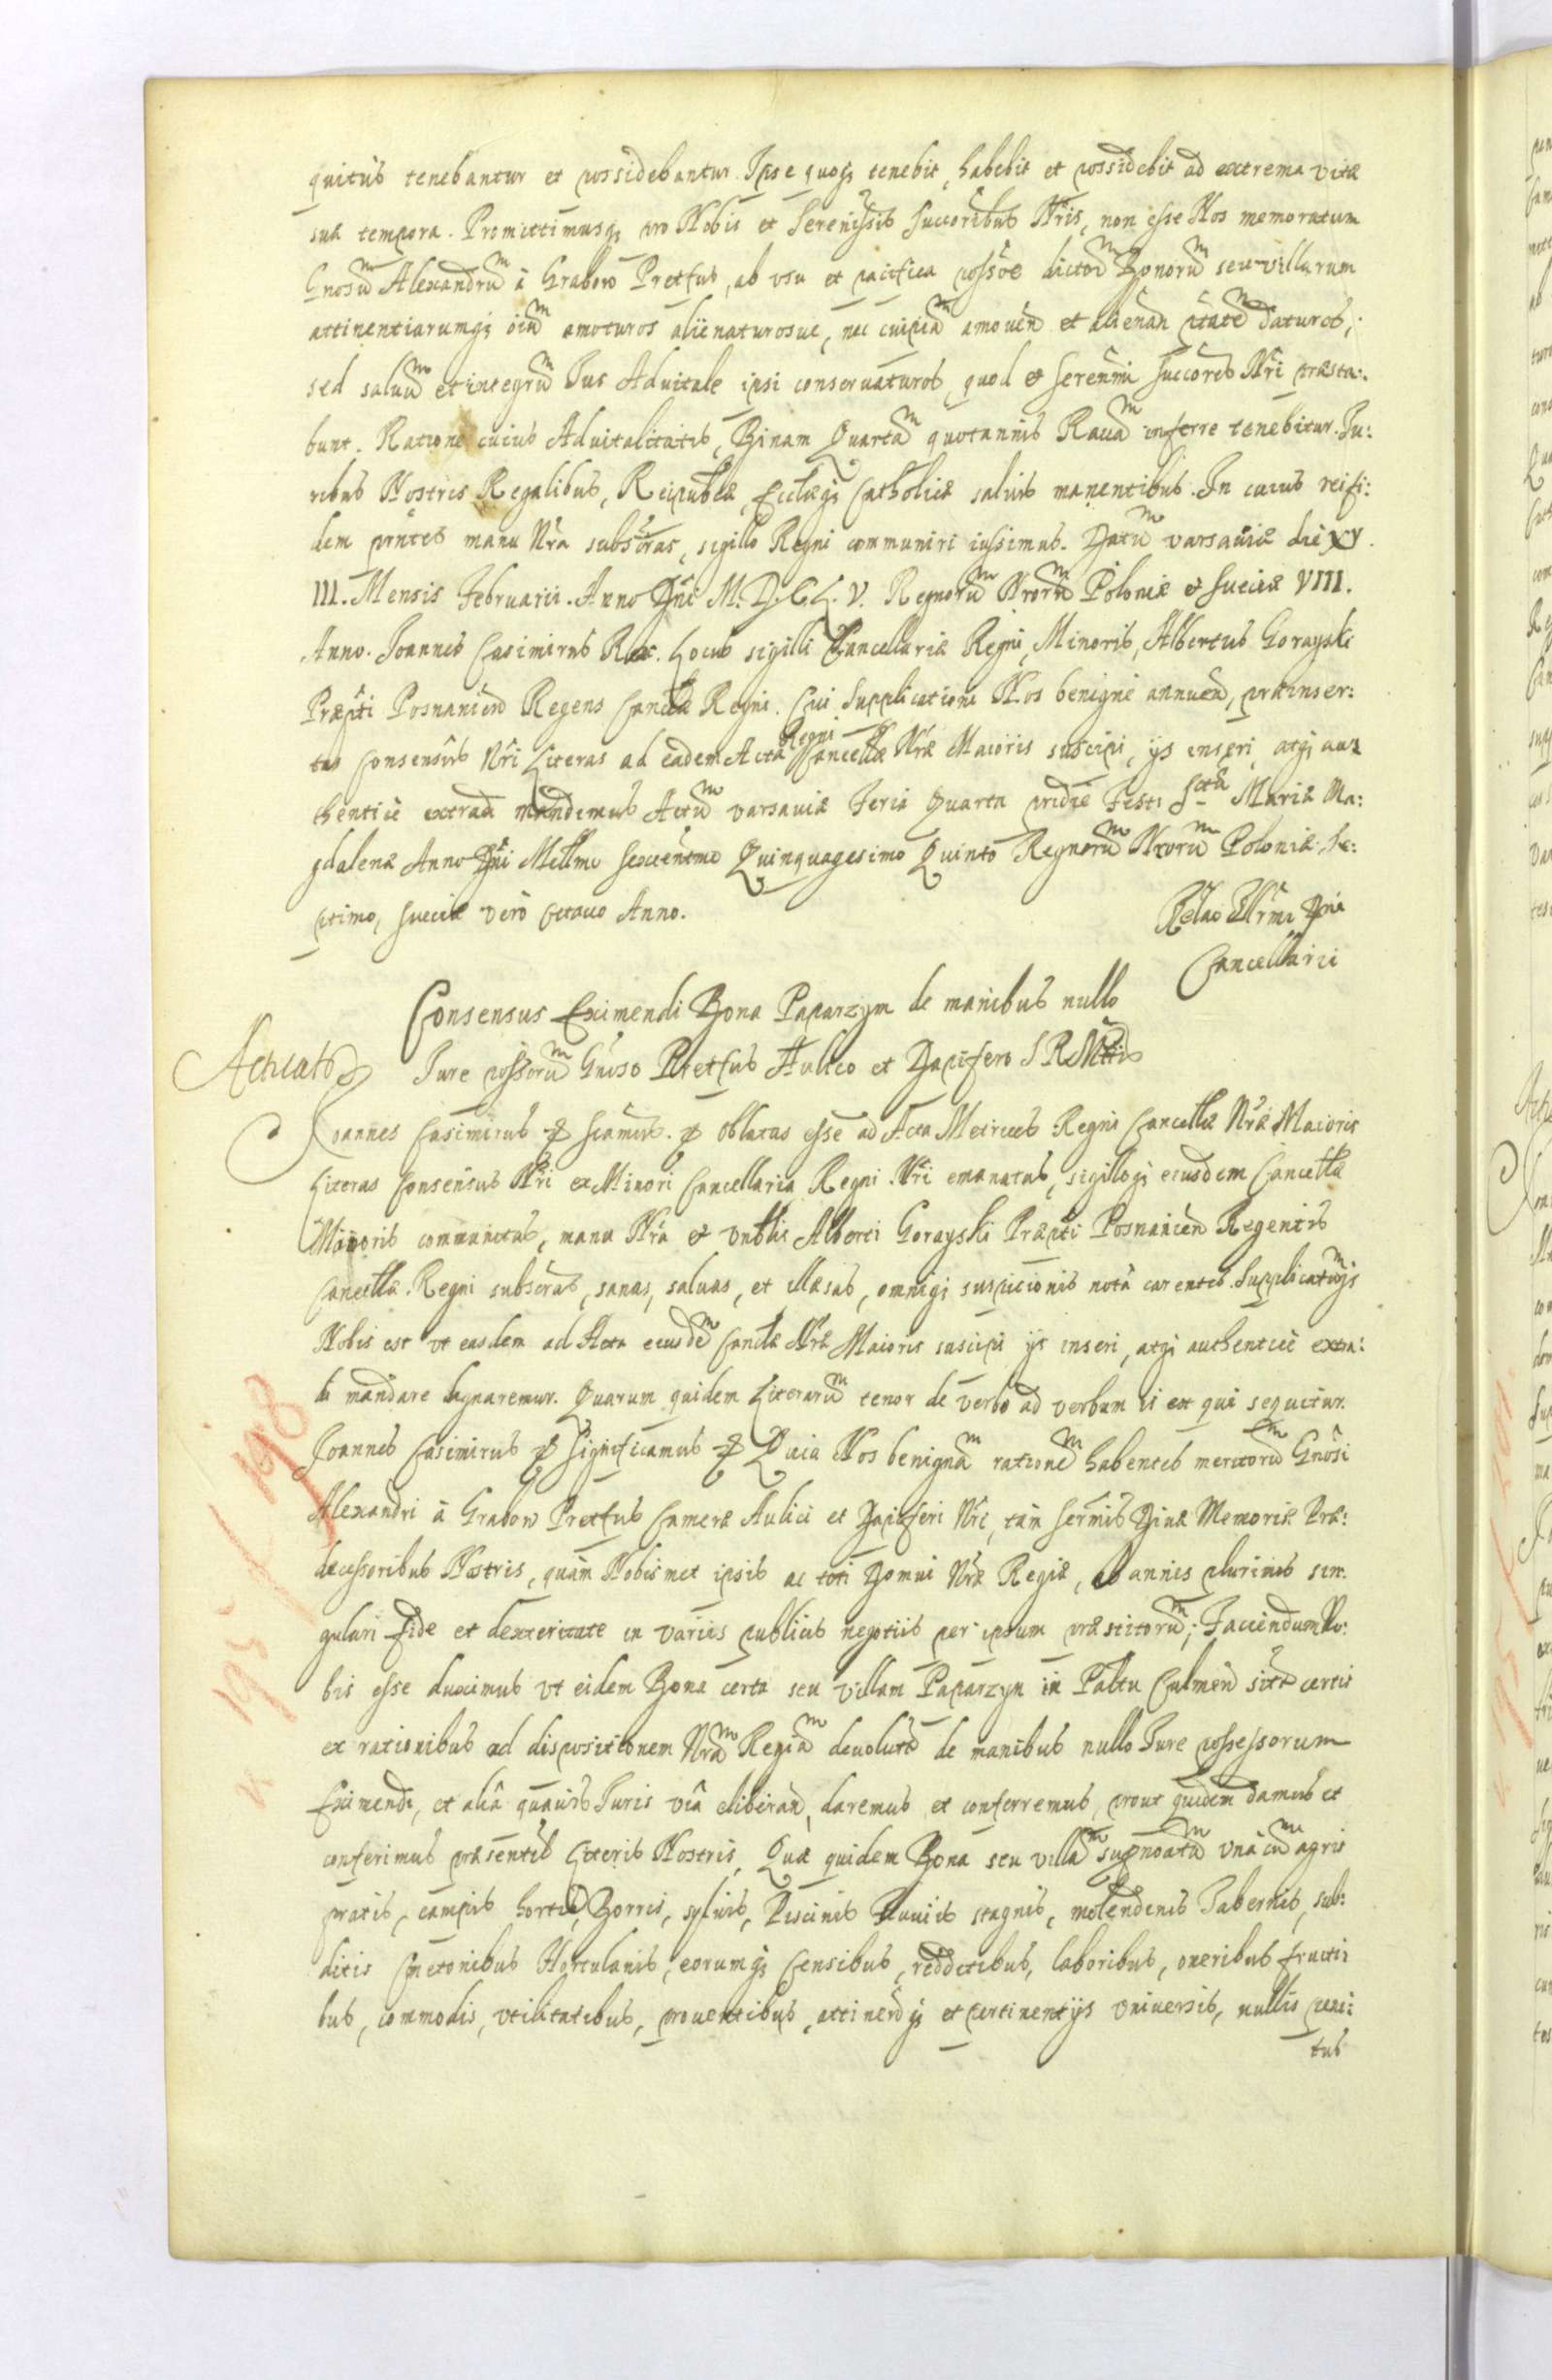 quitus tenebantur et possidebantur Ipse quoqȝ tenebit, habebit et possidebit ad extrema vitæ
suæ tempora. Promittimusqȝ pro Nobis et Serenissis Successoribus Nris, non esse Nos memoratum
Gnosum Alexandrum à Grabow Pretfus, ab usu et pacifica possoe dictorum Bonorum seu villarum
attinentiarumqȝ oium amoturos alienaturosue, nec cuipiam amouen et alienan ptatem daturos;
sed saluum et integrum Ius Aduitale ipsi conseruaturos, quod et Serenmi Succores Nri præsta:
bunt. Ratione cuius Aduitalitatis, Binam Quartam quotannis Rauam inferre tenebitur. Iu:
ribus Nostris Regalibus, Reipublcæ, Ecclæqȝ Catholicæ saluis manentibus. In cuius rei fi:
dem præntes manu Nra subscras, sigillo Regni communiri iussimus. Datum Varsauiæ die XV
III. Mensis Februarii. Anno Dni M. D. C. L. V. Regnorum Nrorum Poloniæ et Sueciæ VIII.
Anno. Joannes Casimirus Rex. Locus sigilli Cancellariæ Regni, Minoris, Albertus Gorayski
Præpti Posnanien Regens Cancellæ Regni. Cui Supplicationi Nos benigne annuen, præinser:
tas Consensus Nri Literas ad eadem Acta Regni Cancellæ Nræ Maioris suscipi, ijs inseri, atqȝ au
thentice extradi mandamus Actum Varsauiæ Feria Quarta pridie Festi Sctæ Mariæ Ma:
gdalenæ Anno Dni Millmo Sexcentmo Quinquagesimo Quinto Regnorum Nrorum Poloniæ Se:
ptimo, Sueciæ vero Octauo Anno.
Relao Illrmi Dni
Cancellarii
Consensus Eximendi Bona Paparzyn de manibus nullo
Acticatio
Iure possorum Gnoso Pretfus Aulico et Dapifero S R Mttis
Joannes Casimirus & Scamus. & Oblatas esse ad Acta Metrices Regni Cancellæ Nræ Maioris
Literas Consensus Nri ex Minori Cancellaria Regni Nri emanatas, sigilloqȝ eiusdem Cancellæ
Minoris communitas, manu Nra et Vrblis Alberti Gorayski Præpti Posnanien Regentis
Cancellæ Regni subscras, sanas, saluas, et illæsas, omniqȝ suspicionis nota carentes. Supplicatumqȝ
Nobis est ut easdem ad Acta eiusdem Cancllæ Nræ Maioris suscipi ijs inseri, atqȝ authentice extra:
di mandare dignaremur. Quarum quidem Literarum tenor de verbo ad verbum is est qui sequitur.
Joannes Casimirus & Significamus & Quia Nos benignam rationem habentes meritorum Gnosi
Alexandri à Grabow Pretfus Cameræ Aulici et Dapiferi Nri, tam Sermis Diuæ Memoriæ Præ:
decessoribus Nostris, quàm Nobismet ipsis ac toti Domui Nræ Regiæ, ab annis plurimis sin:
gulari fide et dexteritate in variis publicis negotiis per ipsum præstitorum; Faciendum No:
bis esse duximus ut eidem Bona certa seu villam Paparzyn in Paltu Culmen sita certis
ex rationibus ad dispositionem Nram Regiam deuoluta de manibus nullo Iure possessorum
Eximendi, et aliâ quauis Iuris viâ eliberan, daremus et conferremus, prout quidem damus et
conferimus præsentib Literis Nostris, Quæ quidem Bona seu villam supnoatam unà cum agris
pratis, campis hortis, Borris, syluis, Piscinis Fluuiis stagnis, molendinis Tabernis, sub:
ditis Cmetonibus Hortulanis, eorumqȝ Censibus, redditibus, laboribus, oneribus fructi
bus, commodis, utilitatibus, prouentibus, attinen qȝ et pertinentijs vniuersis, nullis peni:
tus